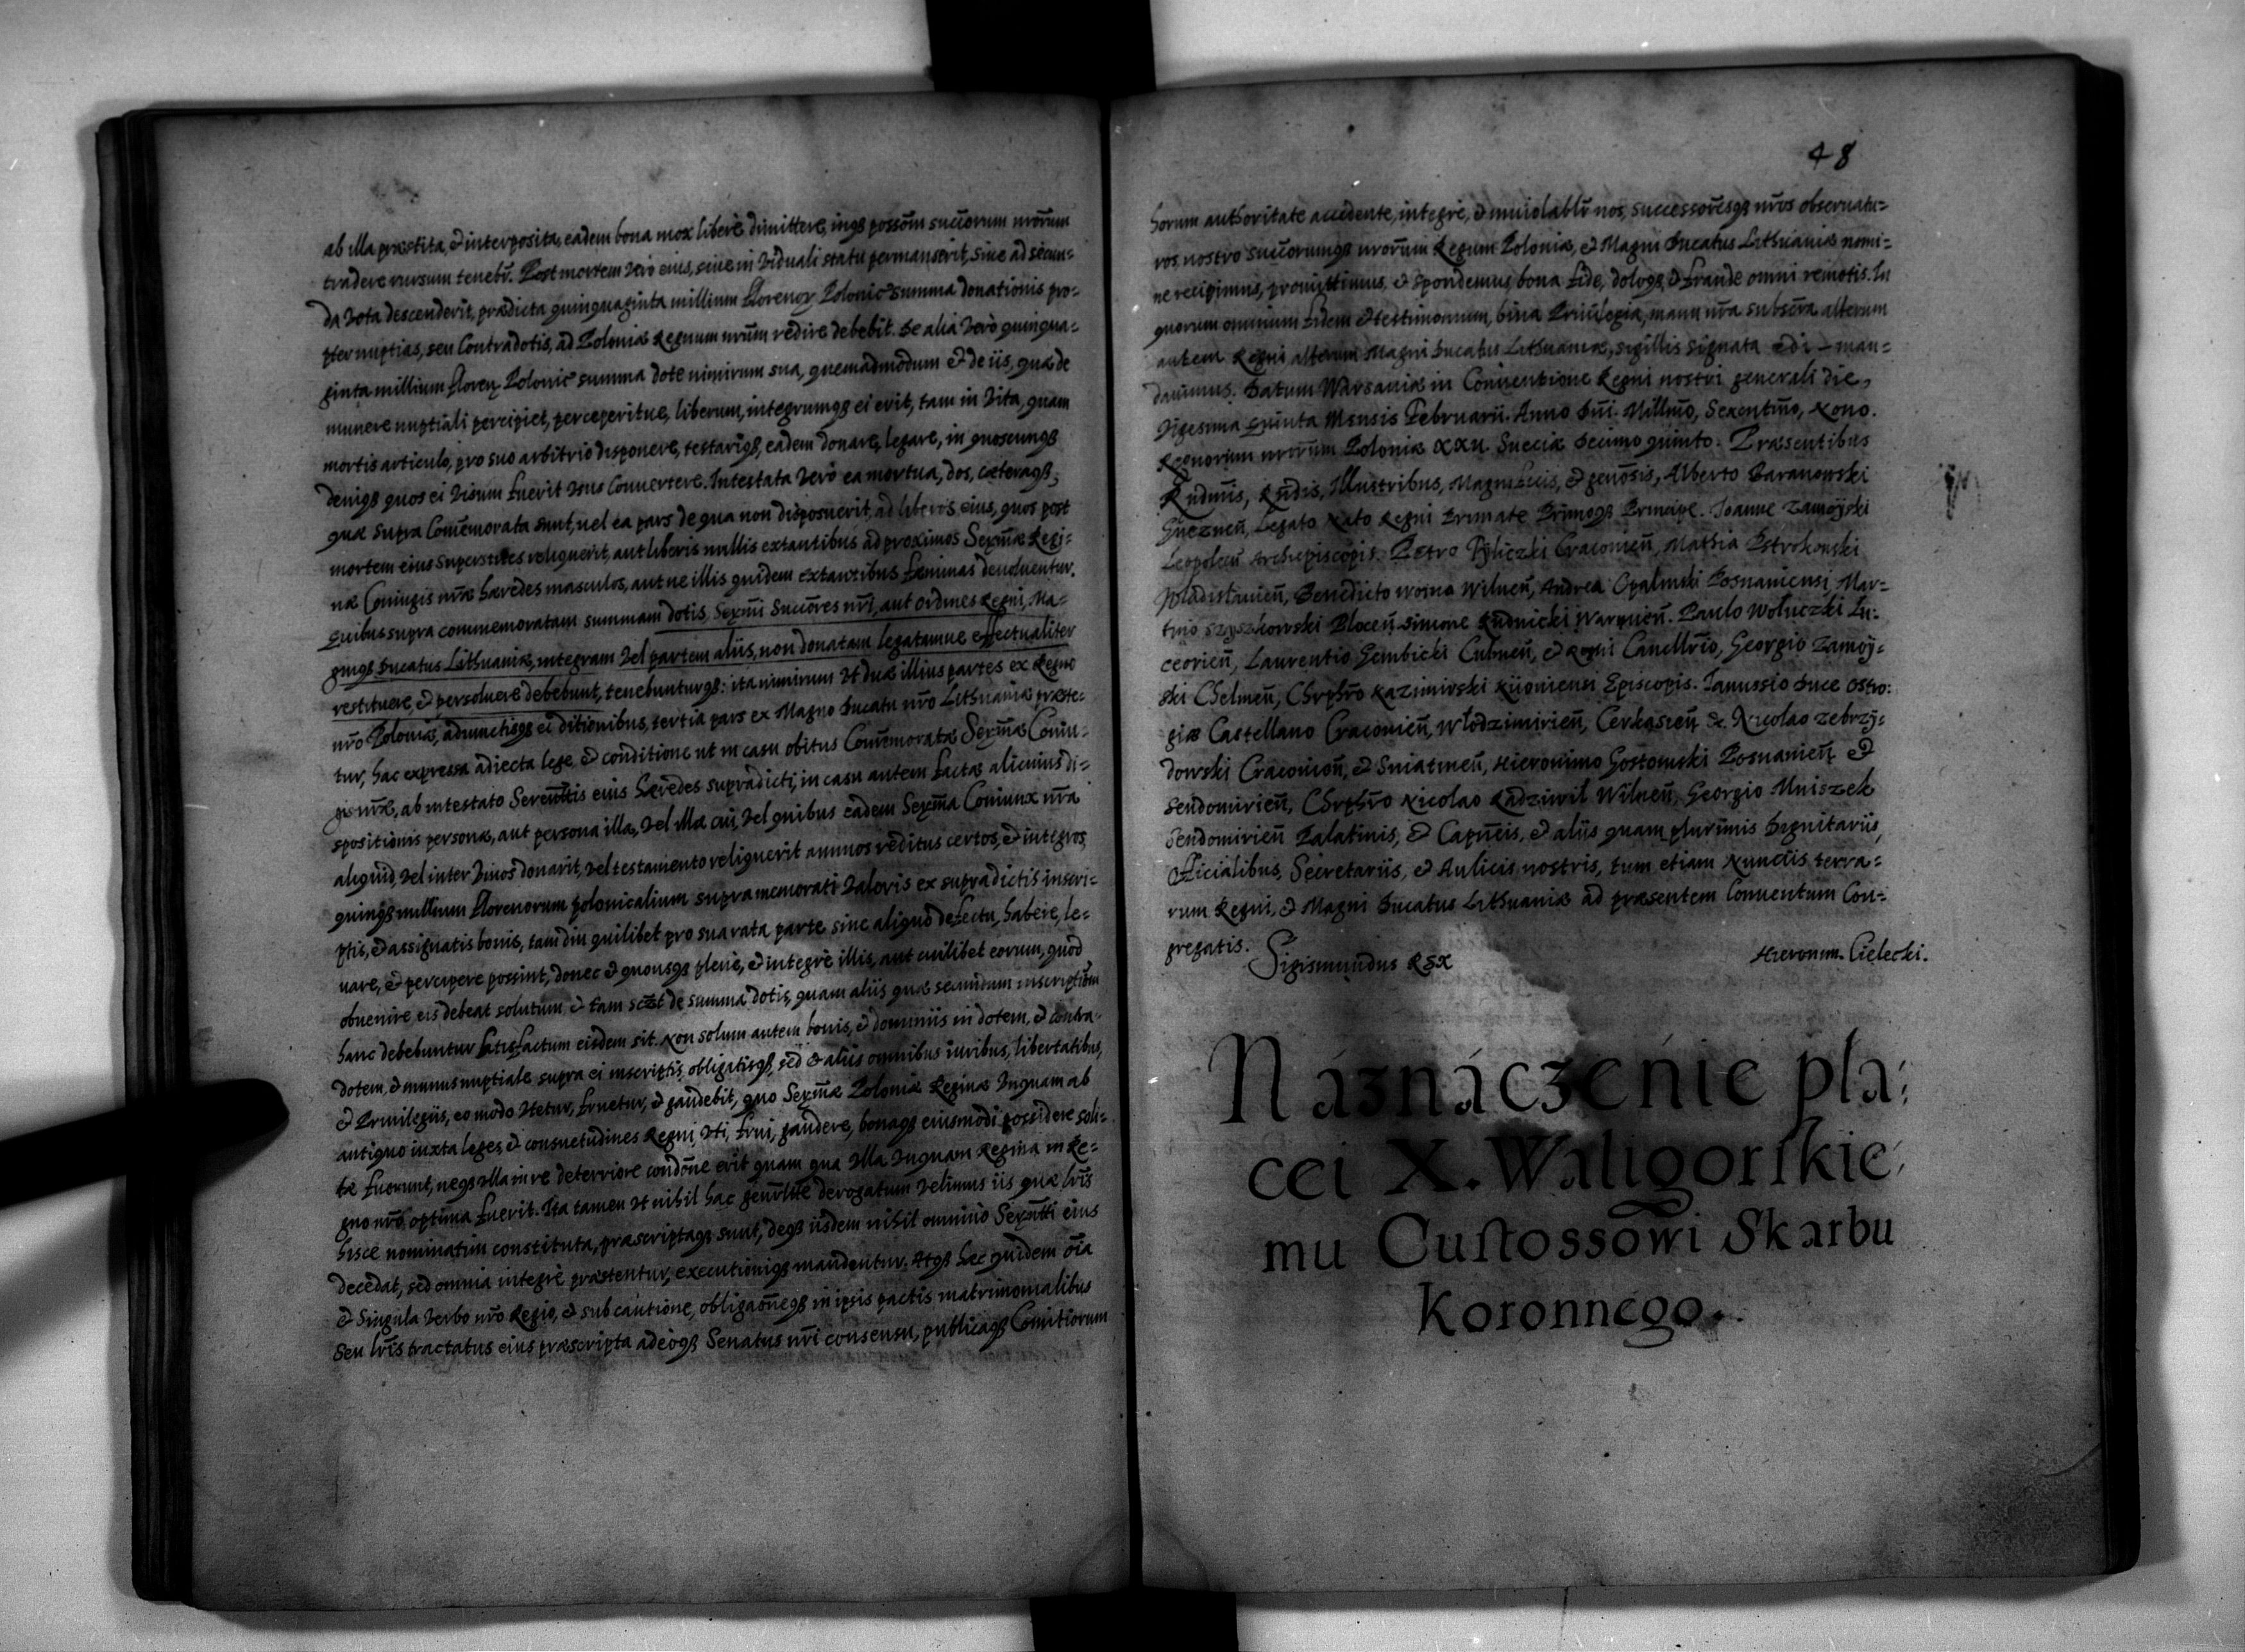 ab illa præstita, & interposita, eadem bona mox liberè dimittere, inq3 possom̃ succ̃orum nrõrum
tradere rursum tenebr̃. Post mortem verò eius, siue in viduali statu permanserit, siue ad secun-
da vota descenderit, prædicta quinquaginta millium florenoꝝ Polonic̃ summa donationis pro-
pter nuptias, seu Contradotis, ad Poloniæ Regnum nrũm redire debebit. De alia verò quinqua-
ginta millium floreꝝ Polonic̃ summa dote nimirum sua, quemadmodum & de iis, quæ de
munere nuptiali percipiet, perceperitue, liberum, integrumq3 ei erit, tam in vita, quam
mortis articulo, pro suo arbitrio disponere, testariq3, eadem donare, legare, in quoscunq3
deniq3 quos ei visum fuerit vsus Conuertere. Intestata verò ea mortua, dos, cæteraq3,
quæ supra Com̃emorata sunt, uel ea pars de qua non disposuerit, ad liberos eius, quos post
mortem eius superstites reliquerit, aut liberis nullis extantibus ad proximos Serm̃æ Regi-
næ Coniugis nrã̃e hæredes masculos, aut ne illis quidem extantibus fæminas deuoluentur.
Quibus supra commemoratam summam dotis, Serm̃i Succõres nrĩ, aut ordines Regni, Ma-
gniq3 Ducatus Lithuaniæ, integram vel partem aliis, non donatam legatamue effectualiter
restituere, & persoluere debebunt, tenebunturq3: ita nimirum vt duæ illius partes ex Regno
nrõ Poloniæ, adiunctisq3 ei ditionibus, tertia pars ex Magno Ducatu nrõ Lithuaniæ præste-
tur, hac expressa adiecta lege, & conditione ut in casu obitus Com̃emoratæ Serm̃æ Coniu-
gis nrã̃e, ab intestato Serenĩttis eius hæredes supradicti, in casu autem factæ alicuius di-
spositionis personæ, aut persona illa, vel illæ cui, vel quibus eadem Serm̃a Coniunx nrã
aliquid, vel inter viuos donarit, vel testamento reliquerit annuos reditus certos, & integros
quinq3 millium florenorum polonicalium supra memorati valoris ex supradictis inscri-
ptis, & assignatis bonis, tam diu quilibet pro sua rata parte sine aliquo defectu, habere, le-
uare, & percipere possint, donec & quousq3 plenè, & integrè illis, aut cuilibet eorum, quod
obuenire eis debeat solutum, & tam sc̃et de summa dotis, quam aliis quæ secundum inscriptiom̃
hanc debebuntur satisfactum eisdem sit. Non solum autem bonis, & dominiis in dotem, & contra-
dotem, & munus nuptiale supra ei inscriptis, obligatisq3, sed & aliis omnibus iuribus, libertatibus,
& Priuilegiis, eo modo vtetur, fruetur, & gaudebit, quo Serm̃æ Poloniæ Reginæ vnquam ab
antiquo iuxta leges, & consuetudines Regni, vti, frui, gaudere, bonaq3 eiusmodi possidere soli-
tæ fuerunt, neq3 vlla in re deteriore condõne erit quam qua vlla vnquam Regina in Re-
gno nrõ optima fuerit. Ita tamen vt nihil hac genrlĩte derogatum velimus iis quæ lrĩs
hisce nominatim constituta, præscriptaq3 sunt, deq3 iisdem nihil omnino Serenĩtti eius
decedat, sed omnia integrè præstentur, executioniq3 mandentur. Atq3 hæc quidem oĩa
& Singula verbo nrõ Regio, & sub cautione, obligaõneq3 in ipsis pactis matrimonialibus
seu lrĩs tractatus eius præscripta adeòq3 Senatus nrĩ consensu, publicaq3 Comitiorum
48
horum authoritate accedente, integrè, & inuiolablr̃ nos, successorẽsq3 nrõs obseruatu-
ros nostro succ̃orumq3 nrõrum Regum Poloniæ, & Magni Ducatus Lithuaniæ nomi-
ne recipimus, promittimus, & spondemus bona fide, doloq3, & fraude omni remotis. In
quorum omnium fidem & testimonium, bina Priuilegia, manu nrã subscrã alterum
autem Regni alterum Magni Ducatus Lithuaniæ, sigillis signata edi man-
dauimus. Datum Warsauiæ in Conuentione Regni nostri generali die,
Vigesima Quinta Mensis Februarii. Anno Dn̄i. Millmõ, Sexcentmõ, Nono.
Regnorum nrõrum Poloniæ XXII. Sueciæ Decimo quinto. Præsentibus
Rndmĩs, Rndis, Illustribus, Magnificis, & genõsis, Alberto Baranowski
Gneznen̄, Legato Nato Regni Primate Primoq3 Principe. Joanne Zamoyski
Leopolen̄ Archiepiscopis. Petro Tyliczki Cracouien̄, Mathia Pstrokonski
Wladislauien̄, Benedicto Woina Wilnen̄, Andrea Opalinski Posnaniensi, Mar-
tino Szyszkowski Plocen̄ Simone Rudnicki Warmien̄. Paulo Wołuczki Lu-
ceorien̄, Laurentio Gembicki Culmen̄, & Regni Cancllrĩo, Georgio Zamoy-
ski Chelmen̄, Chrphrõ Kazimirski Kiiouiensi Episcopis. Janussio Duce Ostro-
giæ Castellano Cracouien̄, Włodzimirien̄, Cerkasien̄ &. Nicolao Zebrzy-
dowski Cracouien̄, & Sniatinen̄, Hieronimo Gostomski Posnanien̄ &
Sendomirien̄, Chrphrõ Nicolao Radziwil Wilnen̄, Georgio Mniszek
Sendomirien̄ Palatinis, & Capneis, & aliis quam plurimis Dignitariis,
Officialibus, Secretariis, & Aulicis nostris, tum etiam Nunciis terra-
rum Regni, & Magni Ducatus Lithuaniæ ad præsentem Conuentum Con-
gregatis.
Sigismundus Rex
Hieronim. Cielecki.
Náznáczenie pla-
cei X. Waligorskie-
mu Custossowi Skarbu
Koronnego.